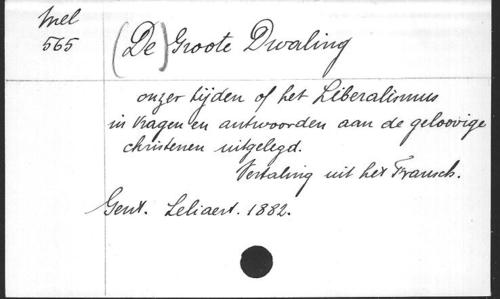 Mel
565
(De) Groote Dwaling
onzer tijden of het Liberalismus
in vragen en antwoorden aan de geloovige
christenen uitgelegd.
Vertaling uit het Fransch.
Gent. Leliaert. 1882.